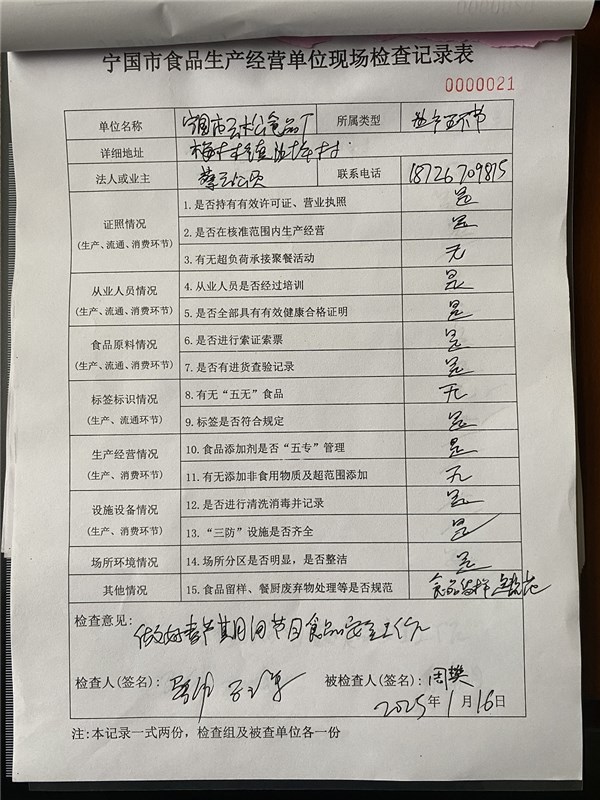 宁国市食品生产经营单位现场检查记录表
0000021
单位名称 宁国市 食品厂 所属类型 生产环节
详细地址 梅林镇 村
法人或业主 联系电话 18726709815
证照情况 (生产、流通、消费环节)
1.是否持有有效许可证、营业执照 是
2.是否在核准范围内生产经营 是
3.有无超负荷承接聚餐活动 无
从业人员情况 (生产、流通、消费环节)
4.从业人员是否经过培训 是
5.是否全部具有有效健康合格证明 是
食品原料情况 (生产、流通、消费环节)
6.是否进行索证索票 是
7.是否有进货查验记录 是
标签标识情况 (生产、流通环节)
8.有无“五无”食品 无
9.标签是否符合规定 是
生产经营情况 (生产、消费环节)
10.食品添加剂是否“五专”管理 是
11.有无添加非食用物质及超范围添加 无
设施设备情况 (生产、消费环节)
12.是否进行清洗消毒并记录 是
13.“三防”设施是否齐全 是
场所环境情况 14.场所分区是否明显，是否整洁 是
其他情况 15.食品留样、餐厨废弃物处理等是否规范 食品留样 规范
检查意见：
做好春节期间节日食品安全工作
检查人(签名)： 被检查人(签名)： 周樊
2025年1月16日
注:本记录一式两份，检查组及被查单位各一份